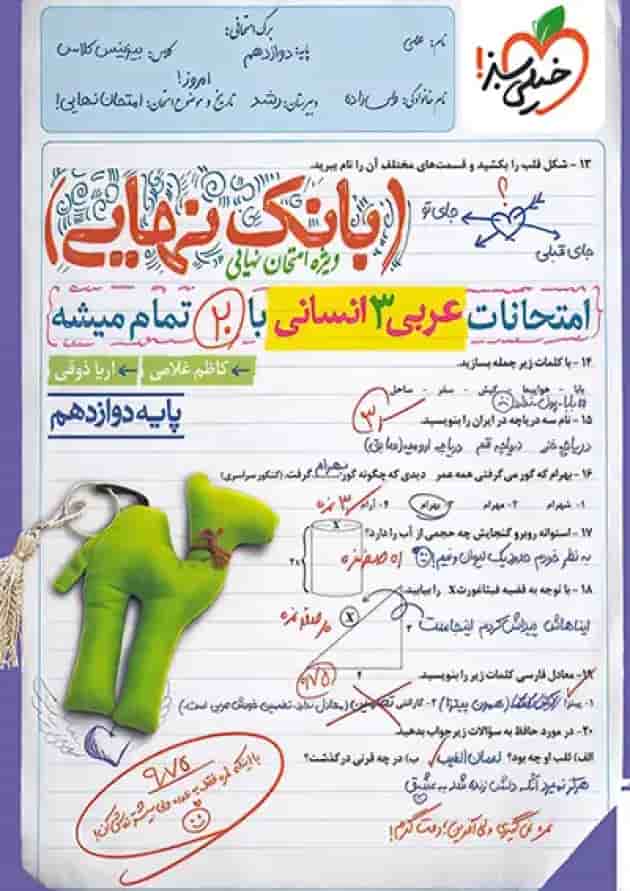 خیلی سبز!
برگ امتحانی:
نام: علی
پایه: دوازدهم
کلاس: بیزینس کلاس
امروز!
نام خانوادگی:
دبیرستان: رشد
تاریخ و موضوع امتحان: امتحان نهایی!
۱۳ - شکل قلب را بکشید و قسمت‌های مختلف آن را نام ببرید.
؟
جای تو
جای قبلی
(بانک نهایی)
ویژه امتحان نهایی
امتحانات عربی ۳ انسانی با ۲۰ تمام میشه
۱۴ - با کلمات زیر جمله بسازید.
کاظم غلامی
آریا ذوقی
بابا - هواپیما - کیش - سفر - ساحل
#بابا_پول_نداره
پایه دوازدهم
۱۵ - نام سه دریاچه در ایران را بنویسید.
دریاچه قم دریاچه ارومیه (سابق)
۱۶ - بهرام که گور می‌گرفتی همه عمر دیدی که چگونه گور بهرام گرفت. (کنکور سراسری)
۱- شهرام ۲- مهرام ۳- بهرام ۴- آرام
۳ نمره
۱۷ - استوانه روبرو گنجایش چه حجمی از آب را دارد؟
X
2x
به نظر خودم حدود یک لیوان و نیم!
۱۸ - با توجه به قضیه فیثاغورث X را بیابید.
X
۳
۴
ایناهاش پیداش کردم اینجاست
۱۹ - معادل فارسی کلمات زیر را بنویسید.
۹/۷۵
۱- پیتزا (همون پیتزا) ۲- گارانتی (معادل ندارد، تضمین خودش عربی است.)
۲۰ - در مورد حافظ به سؤالات زیر جواب بدهید.
الف) لقب او چه بود؟ لسان‌الغیب ب) در چه قرنی درگذشت؟
هرگز نمیرد آنکه دلش زنده شد به عشق
۹/۷۵
نمره نمی‌گیری ولی آفرین؛ دمت گرم!